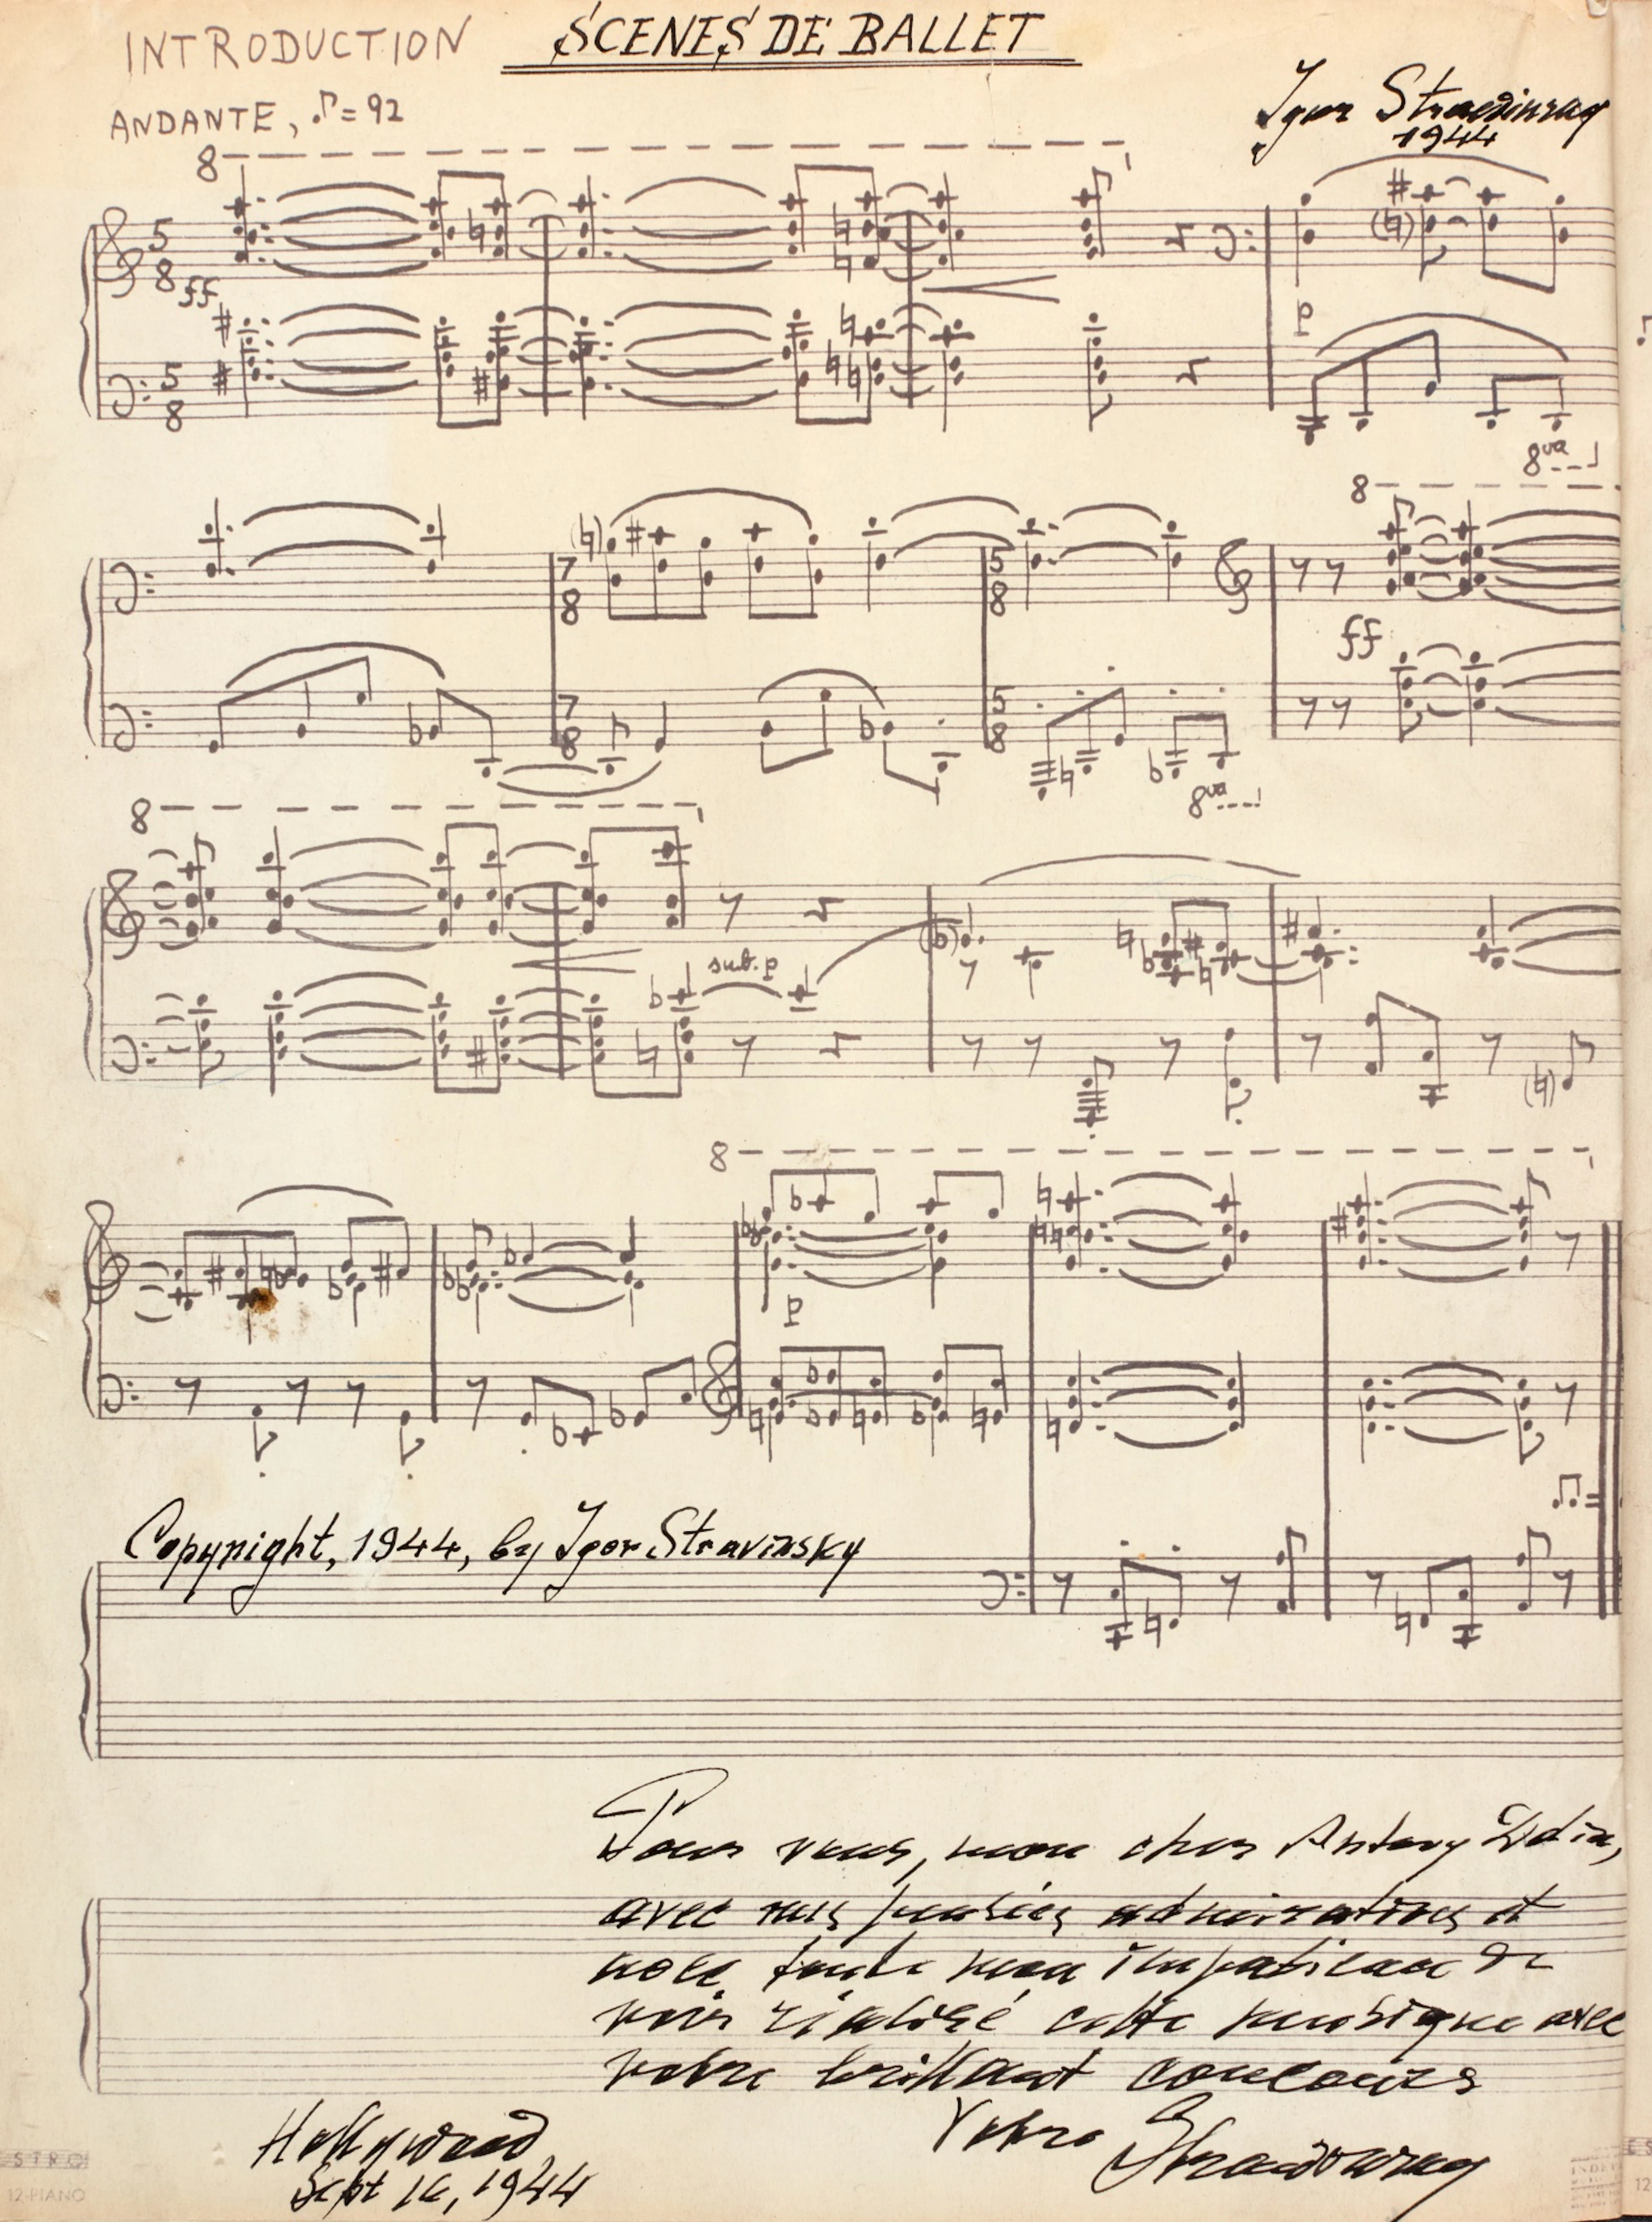 INTRODUCTION SCENES DE BALLET
Igor Strawinsky
1944
ANDANTE, ♪=92
8
5 8
ff
5 8
p
8va
8
7 8
5 8
ff
7 8
5 8
8va
8
sub. p
8
p
Copyright, 1944, by Igor Stravinsky
Pour vous, mon cher Antony
avec mes admirations et
avec toute mon impatience de
voir réalisé cette musique avec
votre brillant concours
Votre Strawinsky
Hollywood
Sept 16, 1944
12-PIANO